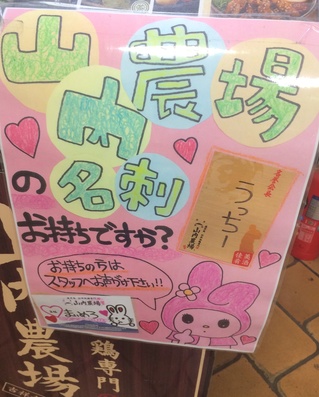 山内農場
の名刺
お持ちですか?
うっちー
お持ちの方は
スタッフへお声がけ下さい!!
山内農場
まいめろ
内農場
鶏専門